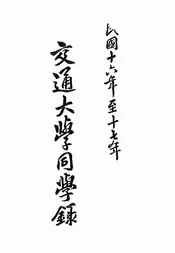 民國十六年至十七年
交通大學同學錄